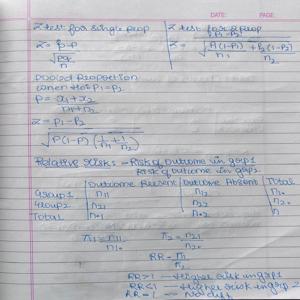 DATE PAGE
Z test for single prop
Z = p̂ - P
√PQ
n
Z test for 2 prop
P1 - P2
Z = √P1(1-P1) + P2(1-P2)
n1 n2
Pooled Proportion
when H0: P1 = P2
P = x1 + x2
n1 + n2
Z = P1 - P2
√P(1-P)(1/n1 + 1/n2)
Relative Risk: - Risk of outcome in grp 1
Risk of outcome in grp 2
Outcome Present Outcome Absent Total
Group 1 n11 n12 n1.
Group 2 n21 n22 n2.
Total n.1 n.2 n
π1 = n11 π2 = n21
n1. n2.
RR = π1
π2
RR > 1 — Higher risk in grp 1
RR < 1 — Higher risk in grp 2
RR = 1 — No diff